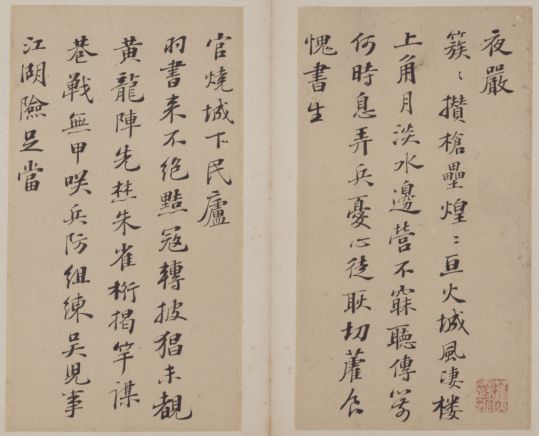 夜嚴
簇〻攢槍壘煌〻亘火城風淒楼
上角月淡水邊營不寐聽傳箭
何時息弄兵憂心徒耿切藿食
愧書生
官燒城下民廬
羽書来不絶黠寇轉披猖未覩
黄龍陣先焚朱雀桁揭竿謀
巷戰無甲咲兵防組練吴児事
江湖險足當